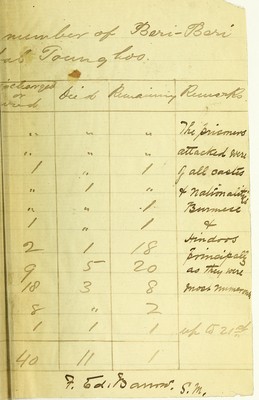 number of Beri-Beri
Tounghoo.
Died Remaining Remarks
„ „ „ The prisoners
„ „ „ attacked were
1 „ 1 of all castes
„ 1 „ & nationalities
„ „ 1 Burmese
1 „ 1 &
Hindoos
2 1 18 principally
9 5 20 as they were
18 3 8 most numerous
8 „ 2
1 1 1 up to 21st
40 11 1
F. Ed. Barrow. S.M.